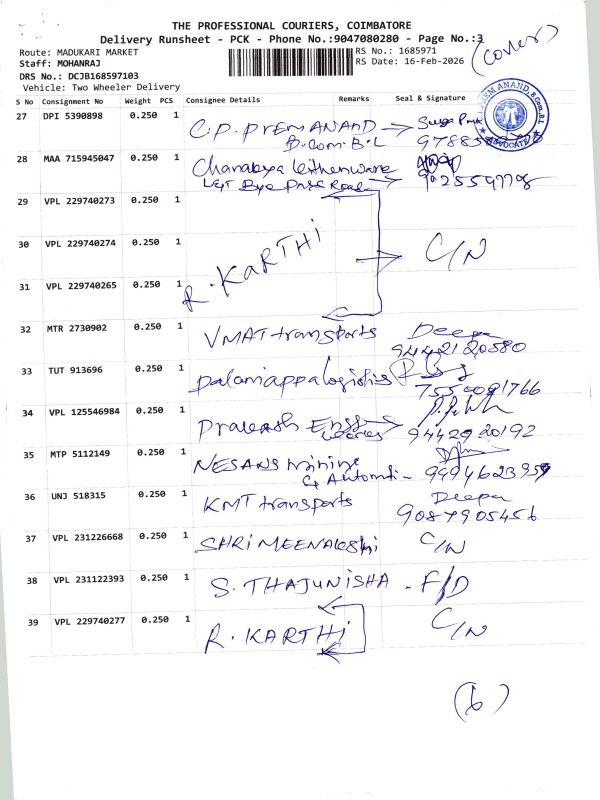 THE PROFESSIONAL COURIERS, COIMBATORE
Delivery Runsheet - PCK - Phone No.:9047080280 - Page No.:3
Route: MADUKARI MARKET
RS No.: 1685971
Staff: MOHANRAJ
RS Date: 16-Feb-2026
(cover)
DRS No.: DCJB168597103
Vehicle: Two Wheeler Delivery
S No Consignment No Weight PCS Consignee Details Remarks Seal & Signature
27 DPI 5390898 0.250 1 C.P. PREMANAND
B.com.B.L
ADVOCATE
28 MAA 715945047 0.250 1
29 VPL 229740273 0.250 1
30 VPL 229740274 0.250 1 R. KARTHI C/N
31 VPL 229740265 0.250 1
32 MTR 2730902 0.250 1 VMAT transports Deepa
9442120580
33 TUT 913696 0.250 1 palaniappa logistics
7550091766
34 VPL 125546984 0.250 1 Prakash
9442920192
35 MTP 5112149 0.250 1 NESANS mining
& Automati- 9994623959
36 UNJ 518315 0.250 1 KMT transports Deepa
9087905456
37 VPL 231226668 0.250 1 SHRI MEENAKSHI C/N
38 VPL 231122393 0.250 1 S. THAJUNISHA - F/D
39 VPL 229740277 0.250 1 R. KARTHI C/N
(6)